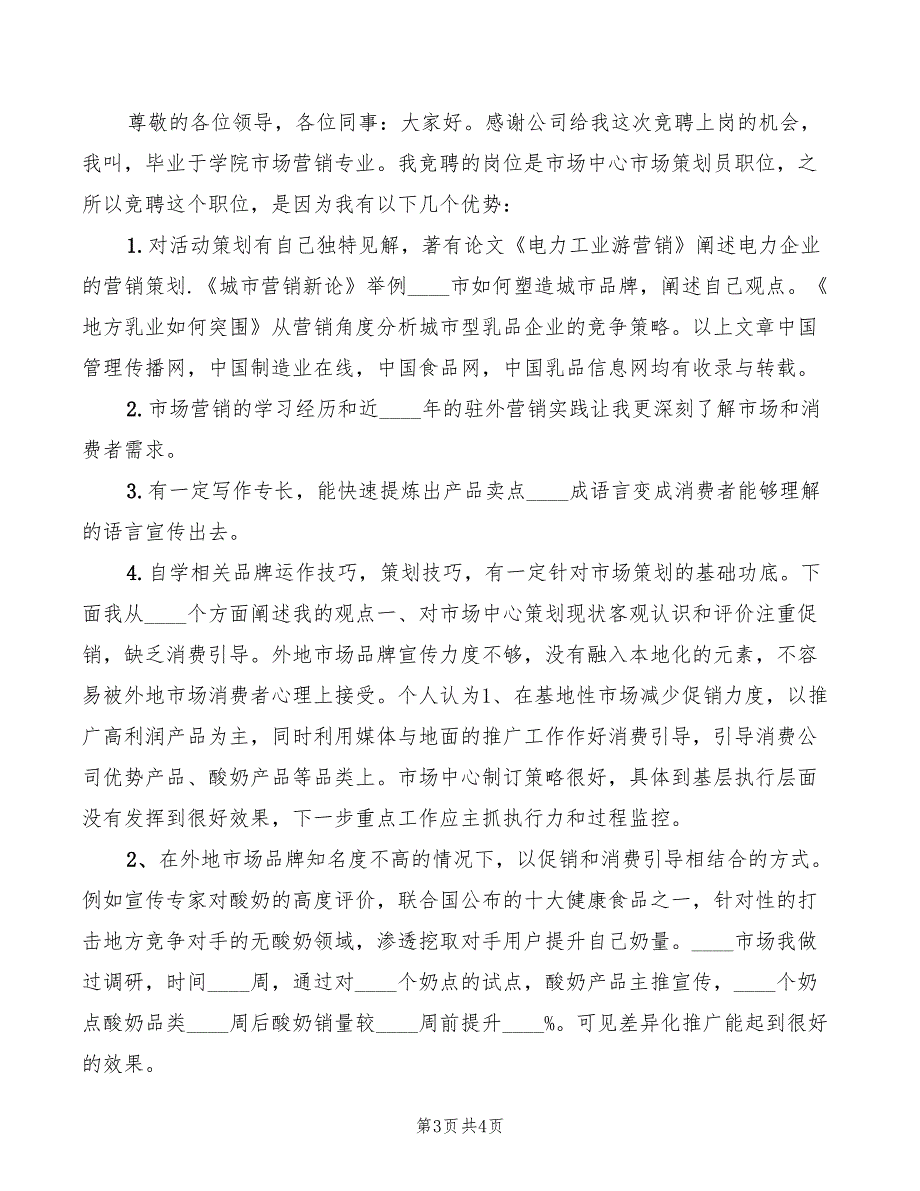 尊敬的各位领导，各位同事：大家好。感谢公司给我这次竞聘上岗的机会，
我叫，毕业于学院市场营销专业。我竞聘的岗位是市场中心市场策划员职位，之
所以竞聘这个职位，是因为我有以下几个优势：
1. 对活动策划有自己独特见解，著有论文《电力工业游营销》阐述电力企业
的营销策划.《城市营销新论》举例____市如何塑造城市品牌，阐述自己观点。《
地方乳业如何突围》从营销角度分析城市型乳品企业的竞争策略。以上文章中国
管理传播网，中国制造业在线，中国食品网，中国乳品信息网均有收录与转载。
2. 市场营销的学习经历和近____年的驻外营销实践让我更深刻了解市场和消
费者需求。
3. 有一定写作专长，能快速提炼出产品卖点____成语言变成消费者能够理解
的语言宣传出去。
4. 自学相关品牌运作技巧，策划技巧，有一定针对市场策划的基础功底。下
面我从____个方面阐述我的观点一、对市场中心策划现状客观认识和评价注重促
销，缺乏消费引导。外地市场品牌宣传力度不够，没有融入本地化的元素，不容
易被外地市场消费者心理上接受。个人认为1、在基地性市场减少促销力度，以推
广高利润产品为主，同时利用媒体与地面的推广工作作好消费引导，引导消费公
司优势产品、酸奶产品等品类上。市场中心制订策略很好，具体到基层执行层面
没有发挥到很好效果，下一步重点工作应主抓执行力和过程监控。
2、在外地市场品牌知名度不高的情况下，以促销和消费引导相结合的方式。
例如宣传专家对酸奶的高度评价，联合国公布的十大健康食品之一，针对性的打
击地方竞争对手的无酸奶领域，渗透挖取对手用户提升自己奶量。____市场我做
过调研，时间____周，通过对____个奶点的试点，酸奶产品主推宣传，____个奶
点酸奶品类____周后酸奶销量较____周前提升____%。可见差异化推广能起到很好
的效果。
第3页共4页